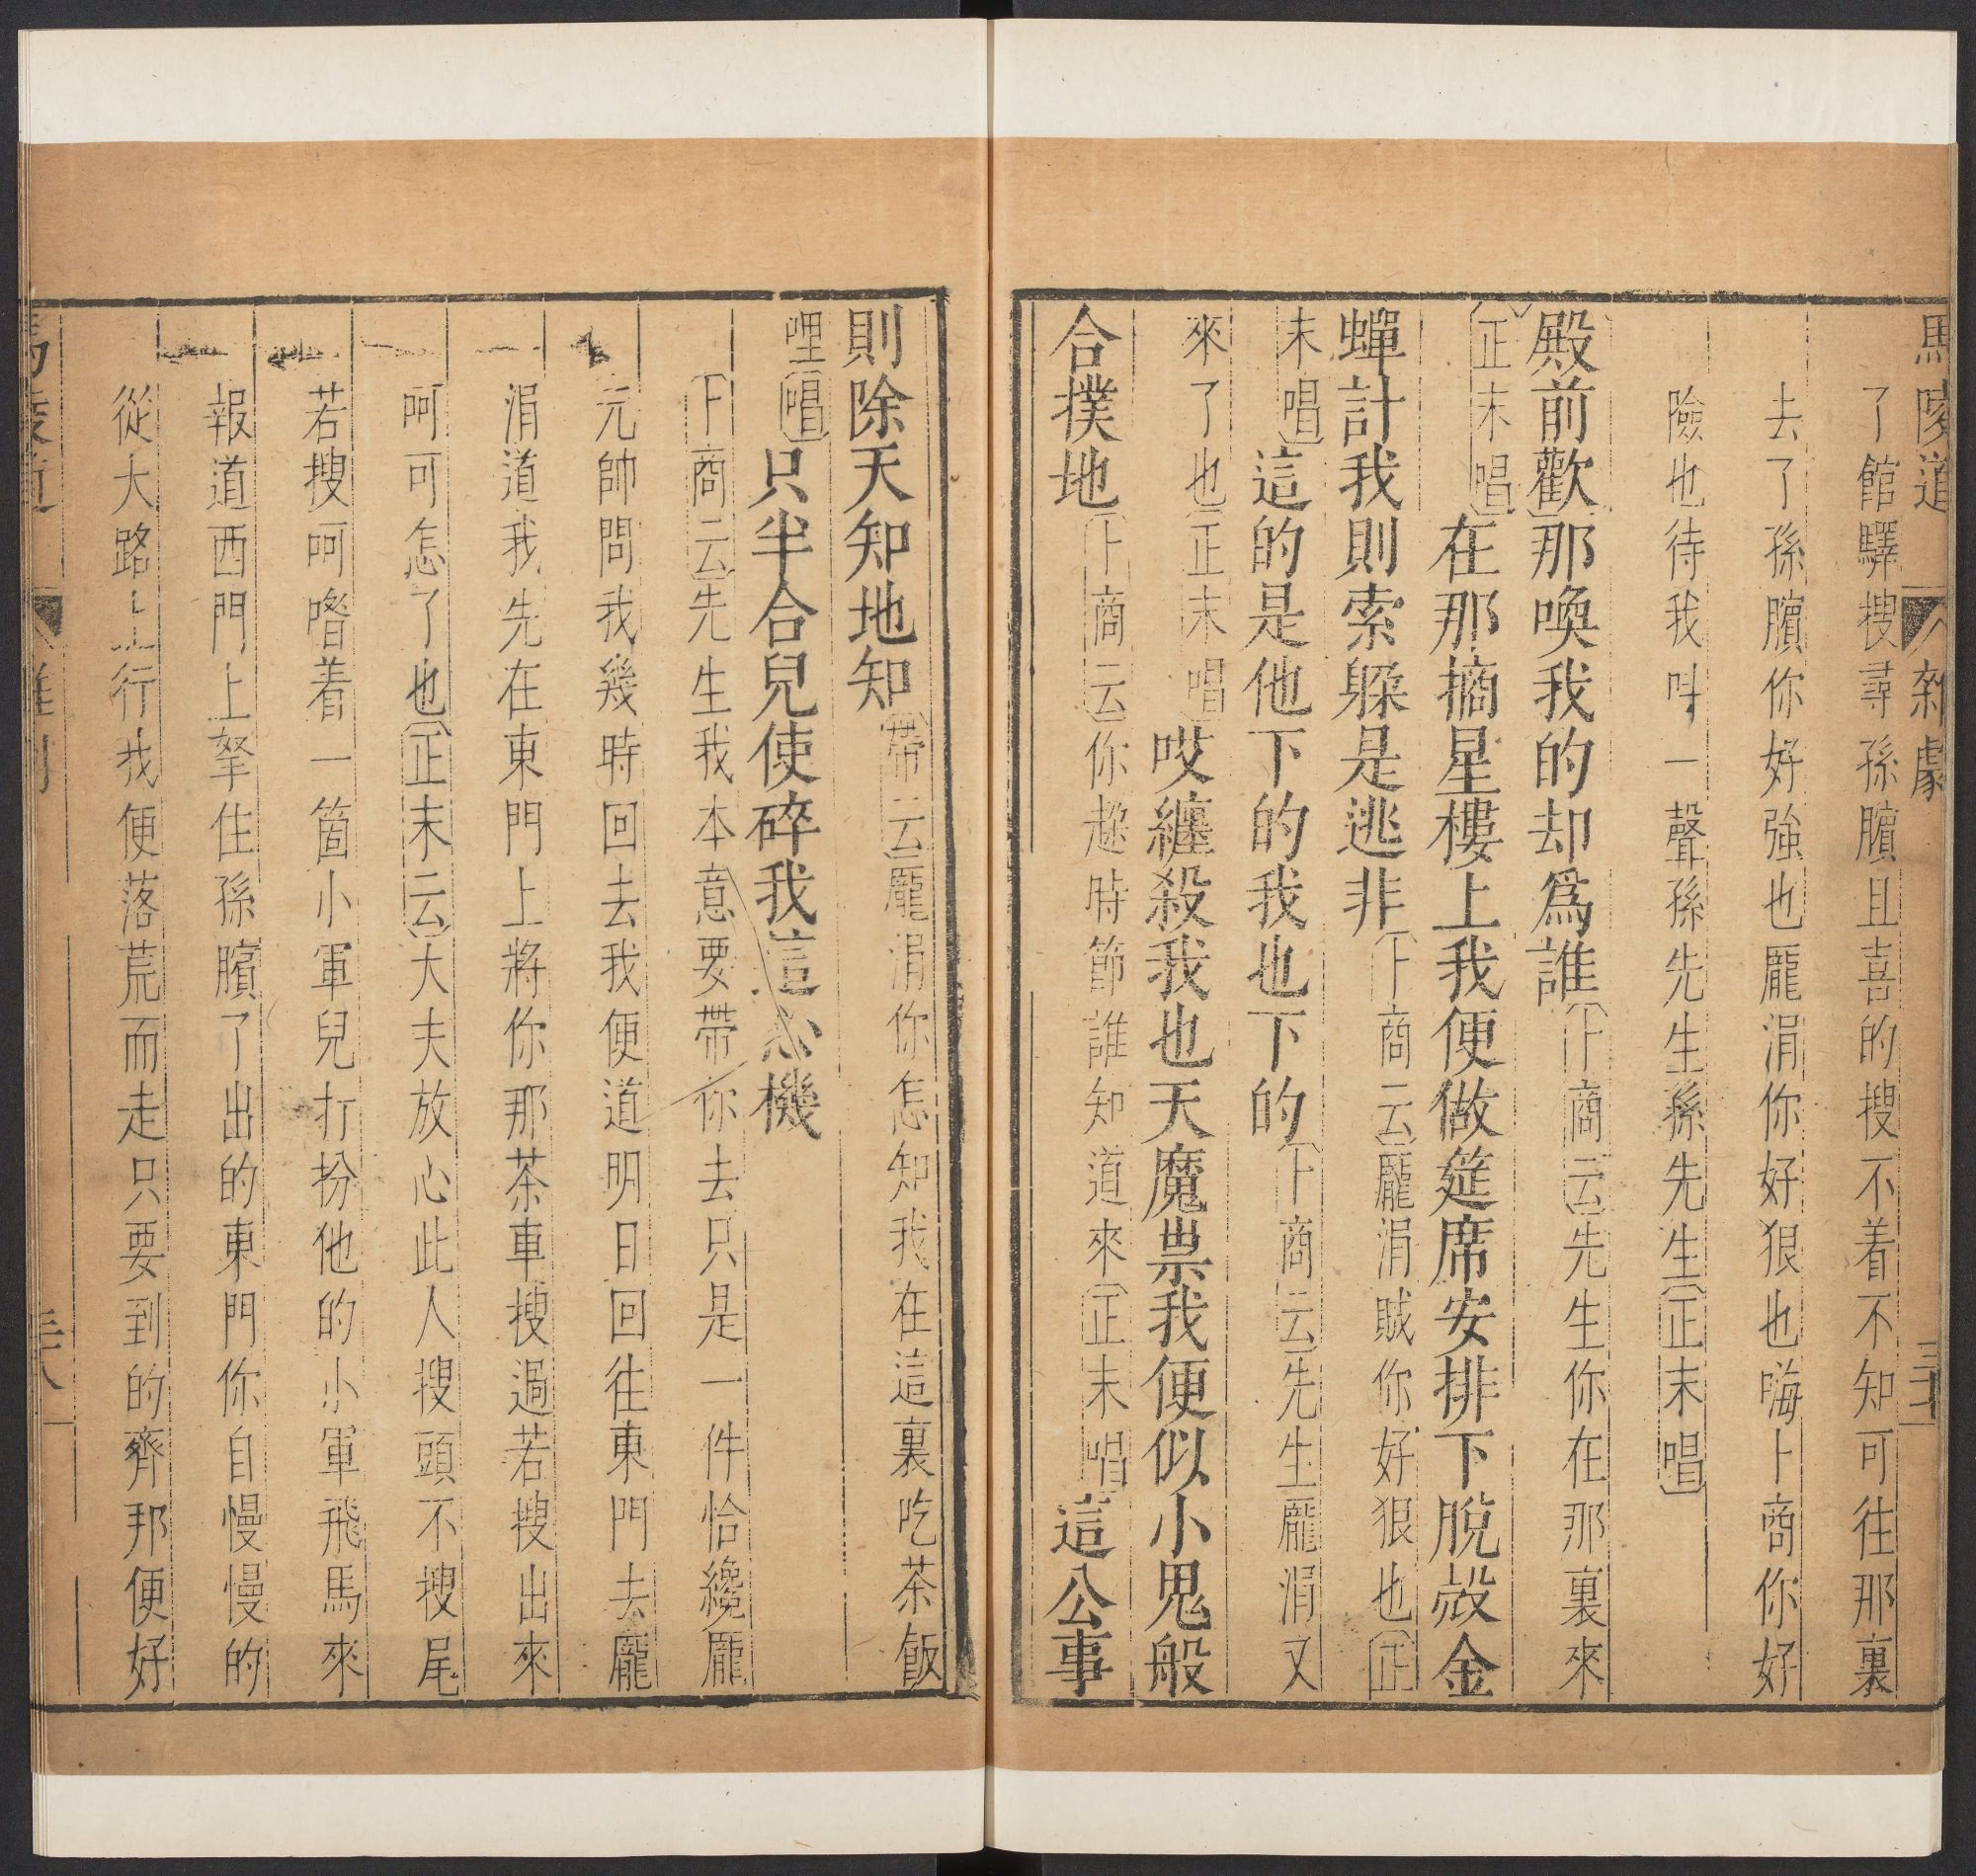 馬陵道 雜劇
了館驛搜尋孫臏且喜的搜不着不知可往那裏
去了孫臏你好強也龐涓你好狠也嗨卜商你好
險也待我叫一聲孫先生孫先生正末唱
殿前歡那喚我的却爲誰卜商云先生你在那裏來
正末唱在那摘星樓上我便做筵席安排下脫殼金
蟬計我則索躲是逃非卜商云龐涓賊你好狠也正
末唱這的是他下的我也下的卜商云先生龐涓又
來了也正末唱哎纏殺我也天魔祟我便似小鬼般
合撲地卜商云你趂時節誰知道來正末唱這公事
則除天知地知帶云龐涓你怎知我在這裏吃茶飯
哩唱只半合兒使碎我這心機
卜商云先生我本意要帶你去只是一件恰纔龐
元帥問我幾時回去我便道明日回往東門去龐
涓道我先在東門上將你那茶車搜過若搜出來
呵可怎了也正末云大夫放心此人搜頭不搜尾
若搜呵喒着一箇小軍兒打扮他的小軍飛馬來
報道西門上拏住孫臏了出的東門你自慢慢的
從大路上行我便落荒而走只要到的齊邦便好